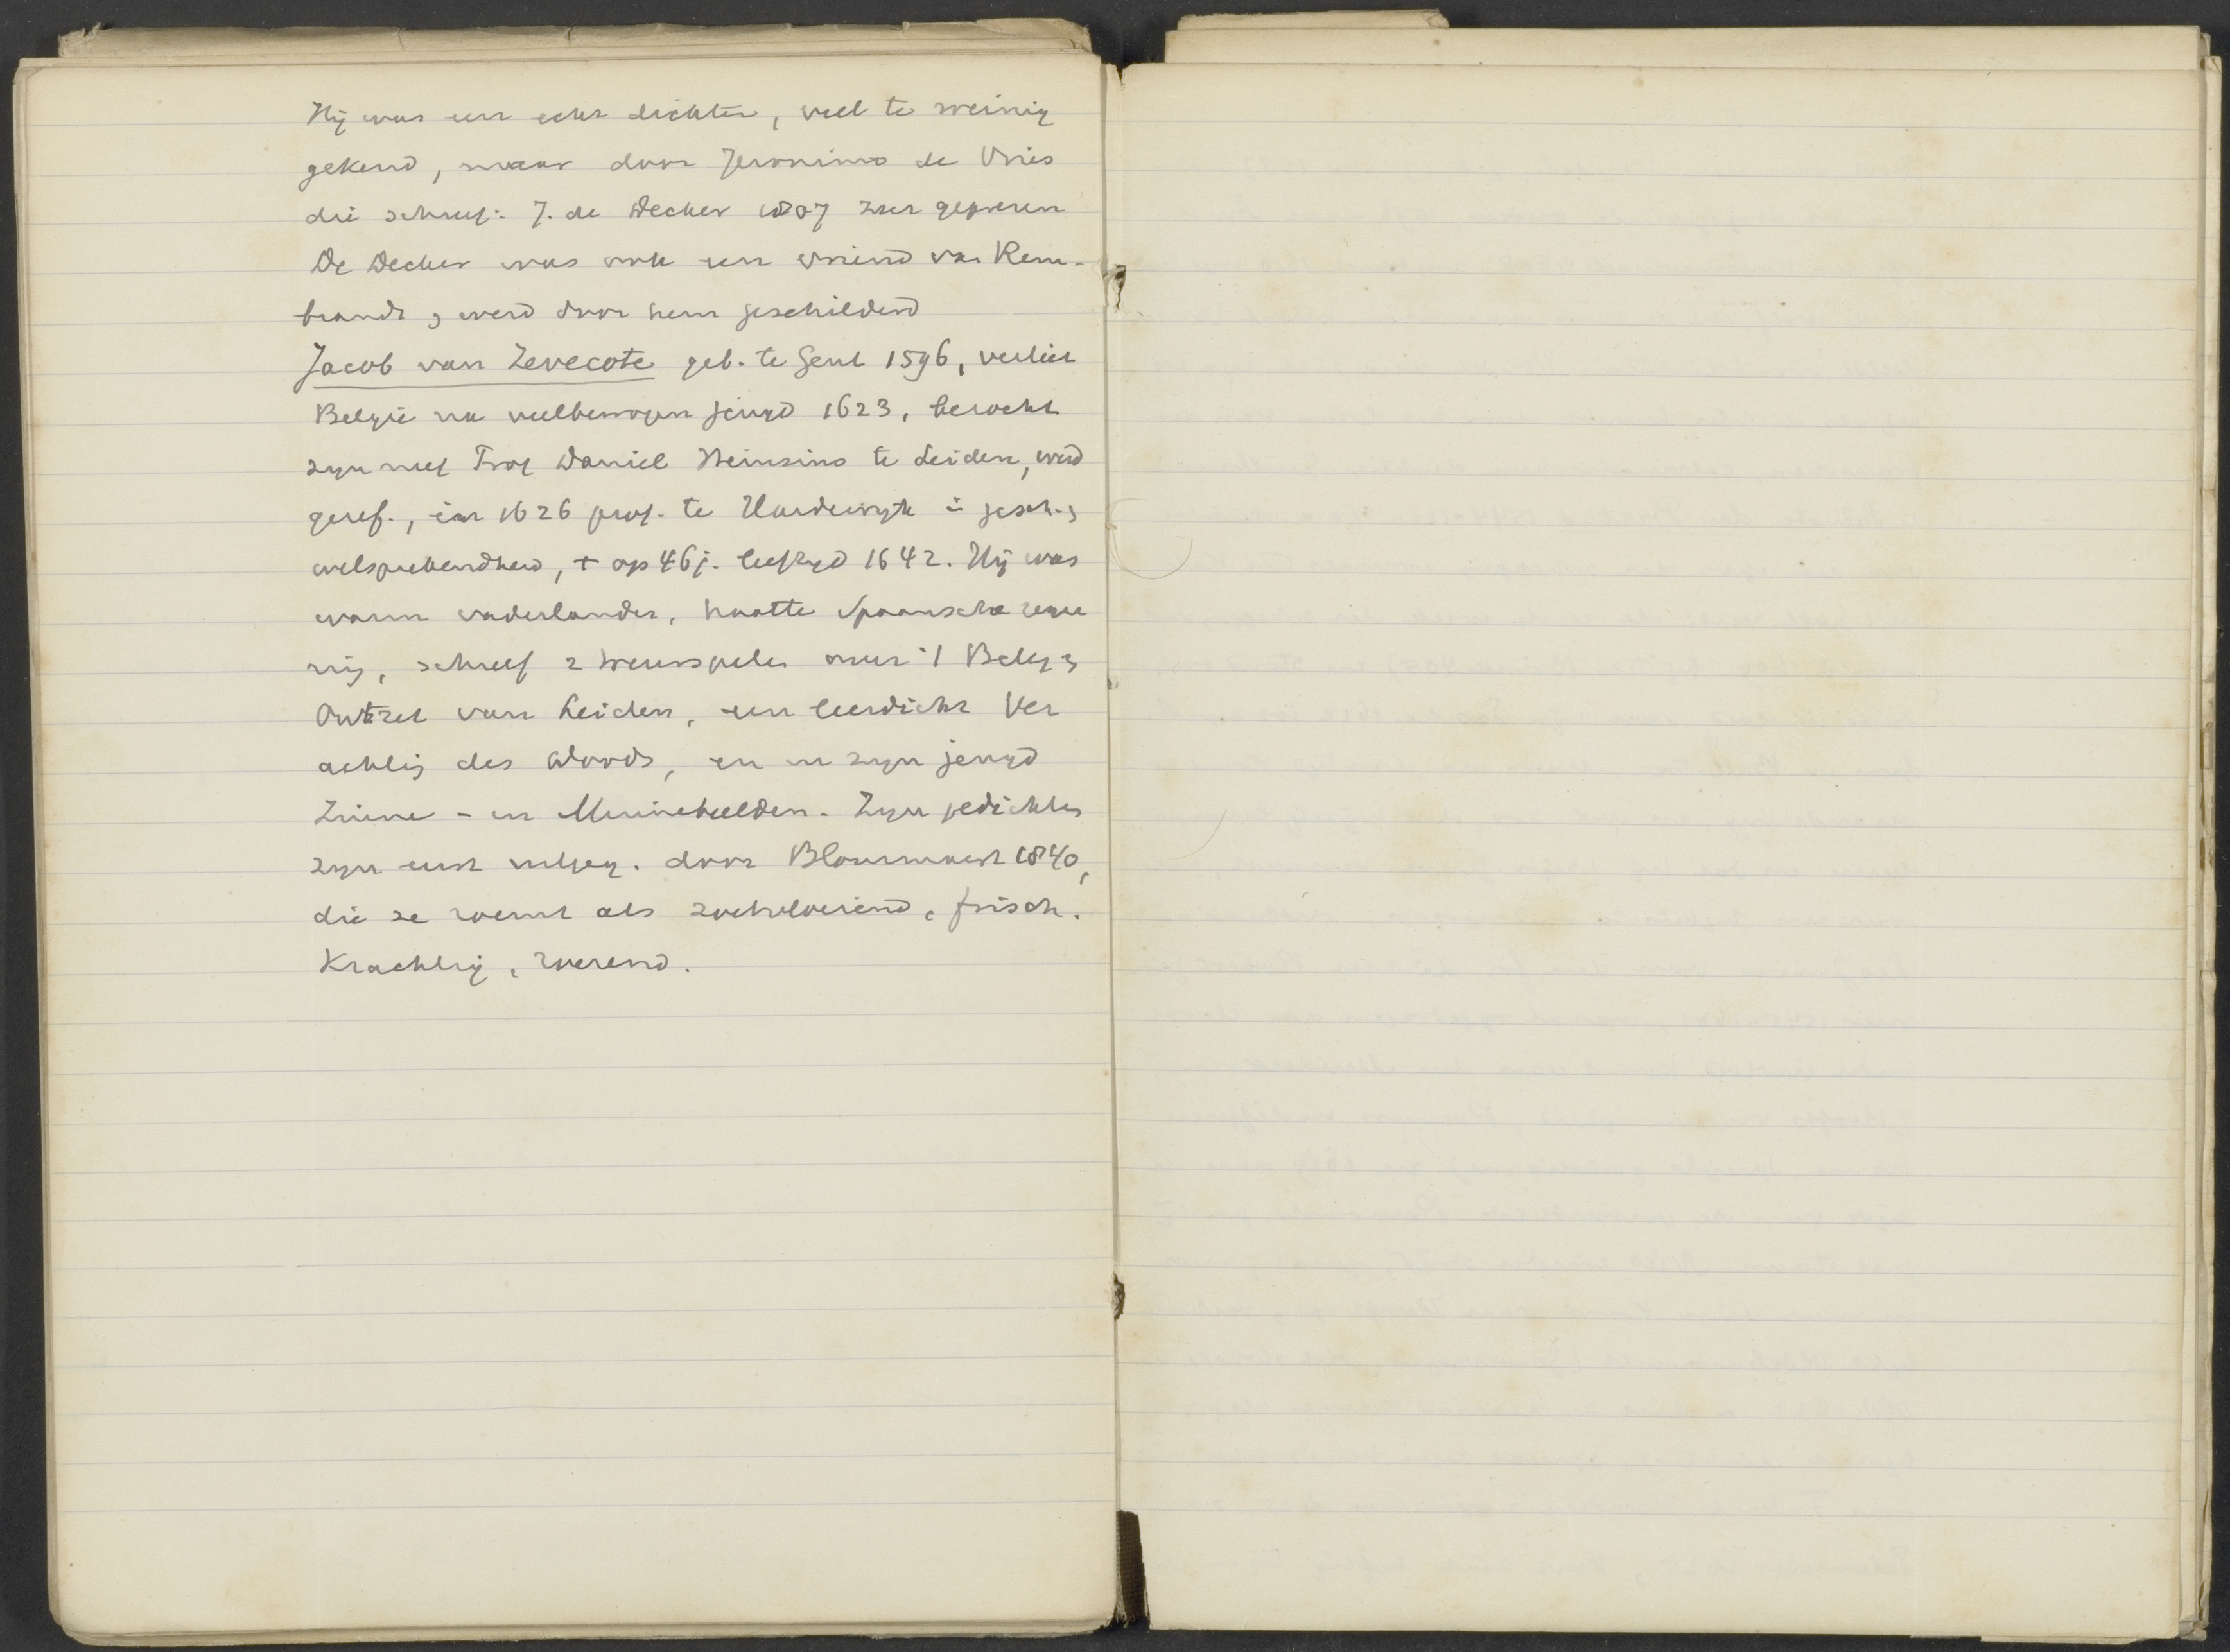 Hij was een echt dichter, veel te weinig
gekend, maar door Jeronimo de Vries
die schreef: J. de Decker 1807 zeer geprezen
De Decker was ook een vriend van Rem-
brandt & werd door hem geschilderd
Jacob van Zevecote geb. te Gent 1596, verliet
België na veelbewogen jeugd 1623, bezocht
zyn neef Prof Daniel Heinsius te Leiden, werd
geref., in 1626 prof. te Harderwyk in gesch. &
welsprekendheid, + op 46 j. leeftyd 1642. Hij was
warm vaderlander, haatte Spaansche rege
ring, schreef 2 treurspelen over 't Beleg &
Ontzet van Leiden, een leerdicht Ver
achting des doods, en in zyn jeugd
Zinne- en Minnebeelden. Zyn gedichten
zyn eerst uitgeg. door Blommaert 1840,
die ze roemt als zoetvloeiend, frisch.
Krachtig, roerend.